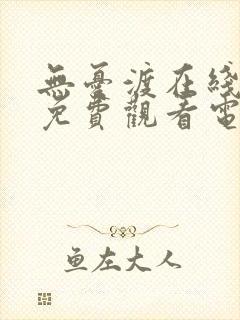 無憂渡在綫
免費觀看電
鱼左大人